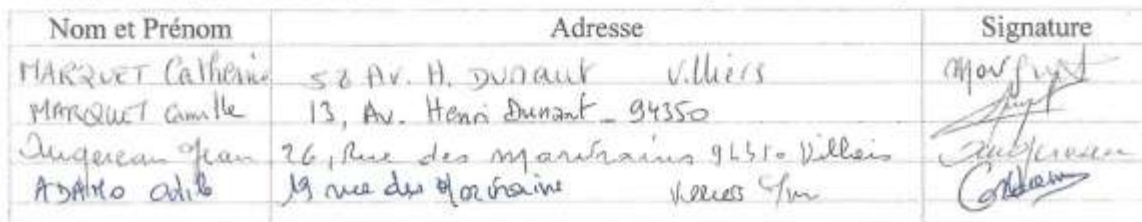 Nom et Prénom Adresse Signature
MARQUET Catherine 58 Av. H. DUNAUT Villiers Marquet
MARQUET Camille 13, Av. Henri Dunant - 94350
Augereau Jean 26, Rue des maraîchers 94350 Villiers Augereau
ADAMO Odile 19 rue des Villiers s/m